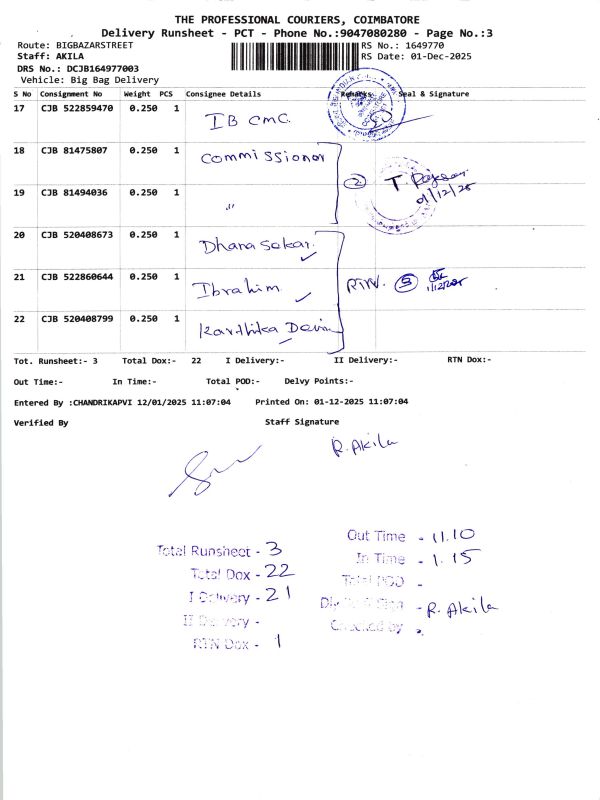 THE PROFESSIONAL COURIERS, COIMBATORE
Delivery Runsheet - PCT - Phone No.:9047080280 - Page No.:3
Route: BIGBAZARSTREET
RS No.: 1649770
Staff: AKILA
RS Date: 01-Dec-2025
DRS No.: DCJB164977003
Vehicle: Big Bag Delivery
S No Consignment No Weight PCS Consignee Details Remarks Seal & Signature
17 CJB 522859470 0.250 1 IB CMC
18 CJB 81475807 0.250 1 Commissioner
2 T.
01/12/25
19 CJB 81494036 0.250 1 "
20 CJB 520408673 0.250 1 Dhana Sekar.
21 CJB 522860644 0.250 1 Ibrahim
22 CJB 520408799 0.250 1 Karthika Devi
Tot. Runsheet:- 3 Total Dox:- 22 I Delivery:- II Delivery:- RTN Dox:-
Out Time:- In Time:- Total POD:- Delvy Points:-
Entered By :CHANDRIKAPVI 12/01/2025 11:07:04 Printed On: 01-12-2025 11:07:04
Verified By Staff Signature
R. Akila
Total Runsheet - 3
Total Dox - 22
I Delivery - 21
II Delivery -
RTN Dox - 1
Out Time - 11.10
In Time - 1.15
Total POD -
- R. Akila
Checked by -